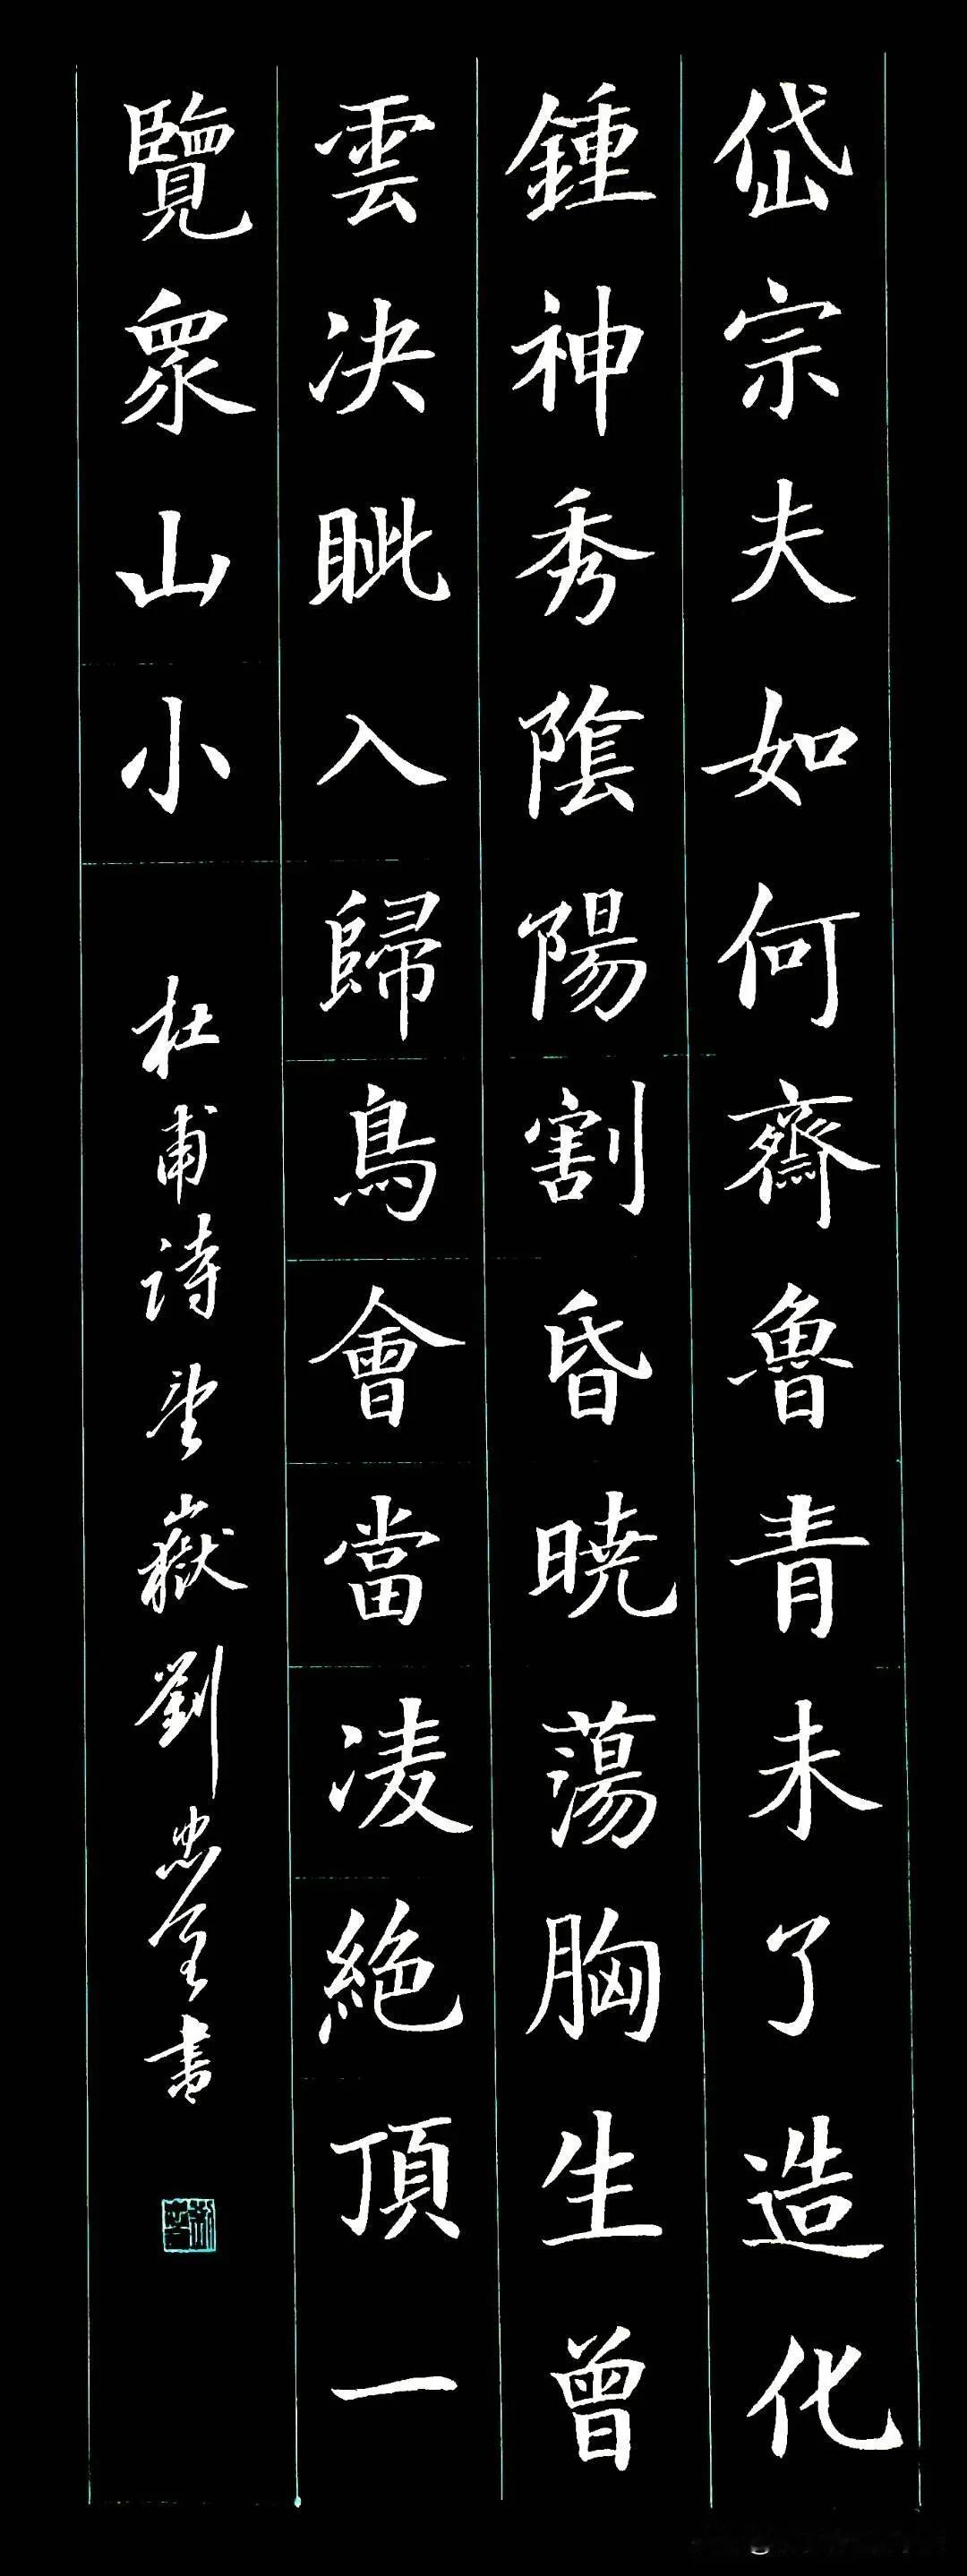 岱宗夫如何齊魯青未了造化
鍾神秀陰陽割昏曉蕩胸生曾
雲決眦入歸鳥會當凌絕頂一
覽眾山小 杜甫詩望嶽劉忠全書